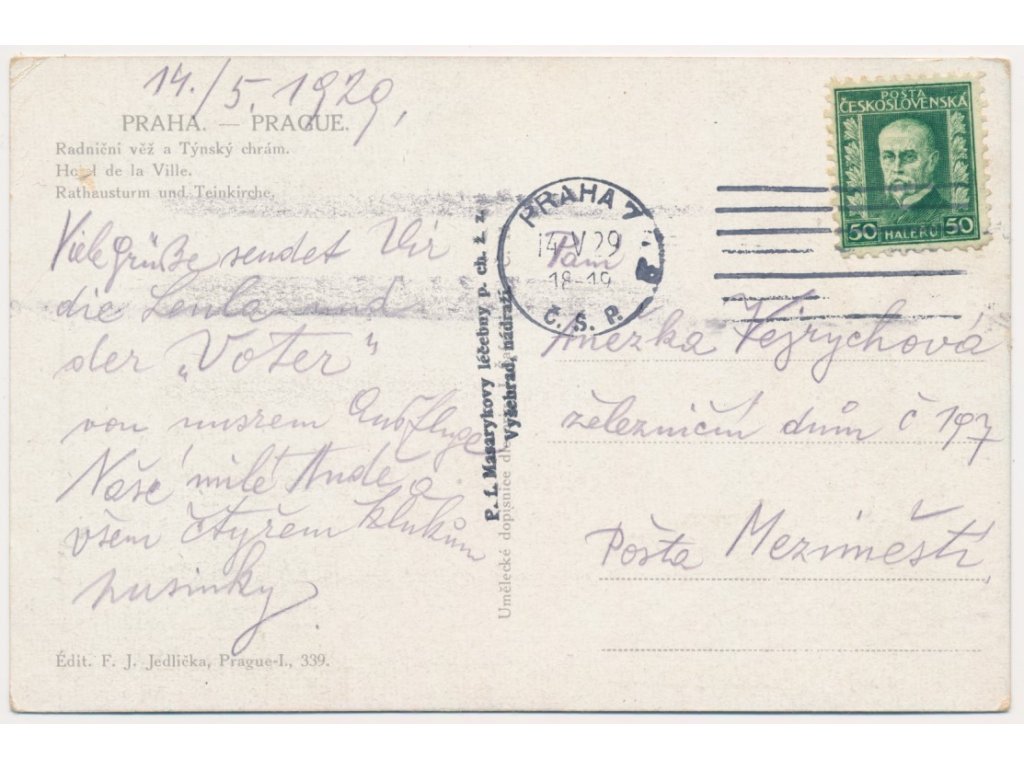 14./5. 1929,
PRAHA. — PRAGUE.
Radniční věž a Týnský chrám.
Hotel de la Ville.
Rathausturm und Teinkirche.
Viele Grüße sendet Dir
die Lenla und
der „Voter"
von unsrem Ausfluge
Naše milé Andě a
všem čtyřem klukům
pusinky.
Édit. F. J. Jedlička, Prague-I., 339.
P. f. Masarykovy léčebny p. ch. ž. z.
Vyšehrad, nádraží
Umělecké dopisnice
PRAHA 7
14. V 29
18-19
Č. S. P.
POSTA
ČESKOSLOVENSKÁ
50 HALÉŘŮ 50
Paní
Anežka Vejrychová
železniční dům č 197
Pošta Meziměstí